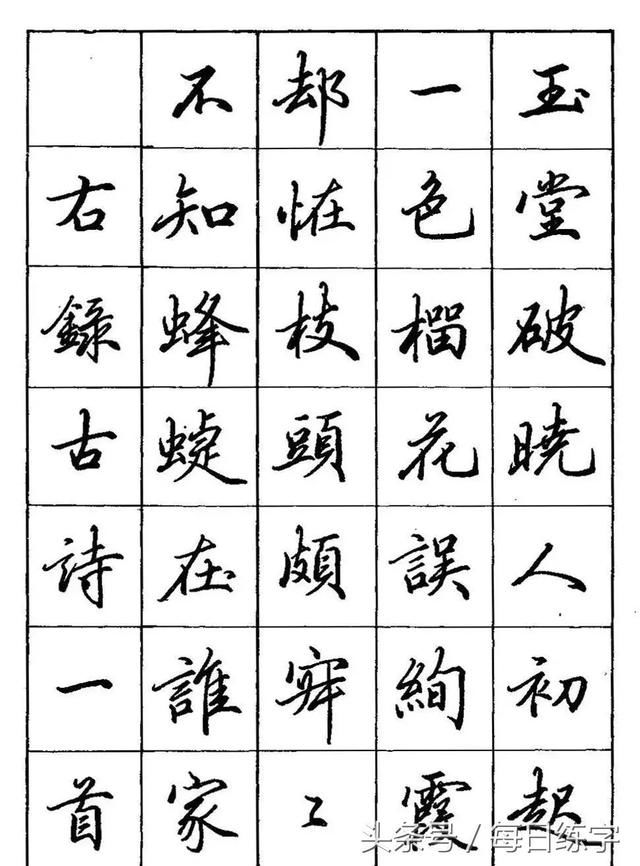 玉堂破曉人初起
一色榴花誤絢霞
却恠枝頭頗寂〻
不知蜂蜨在誰家
右錄古詩一首
头条号 / 每日练字